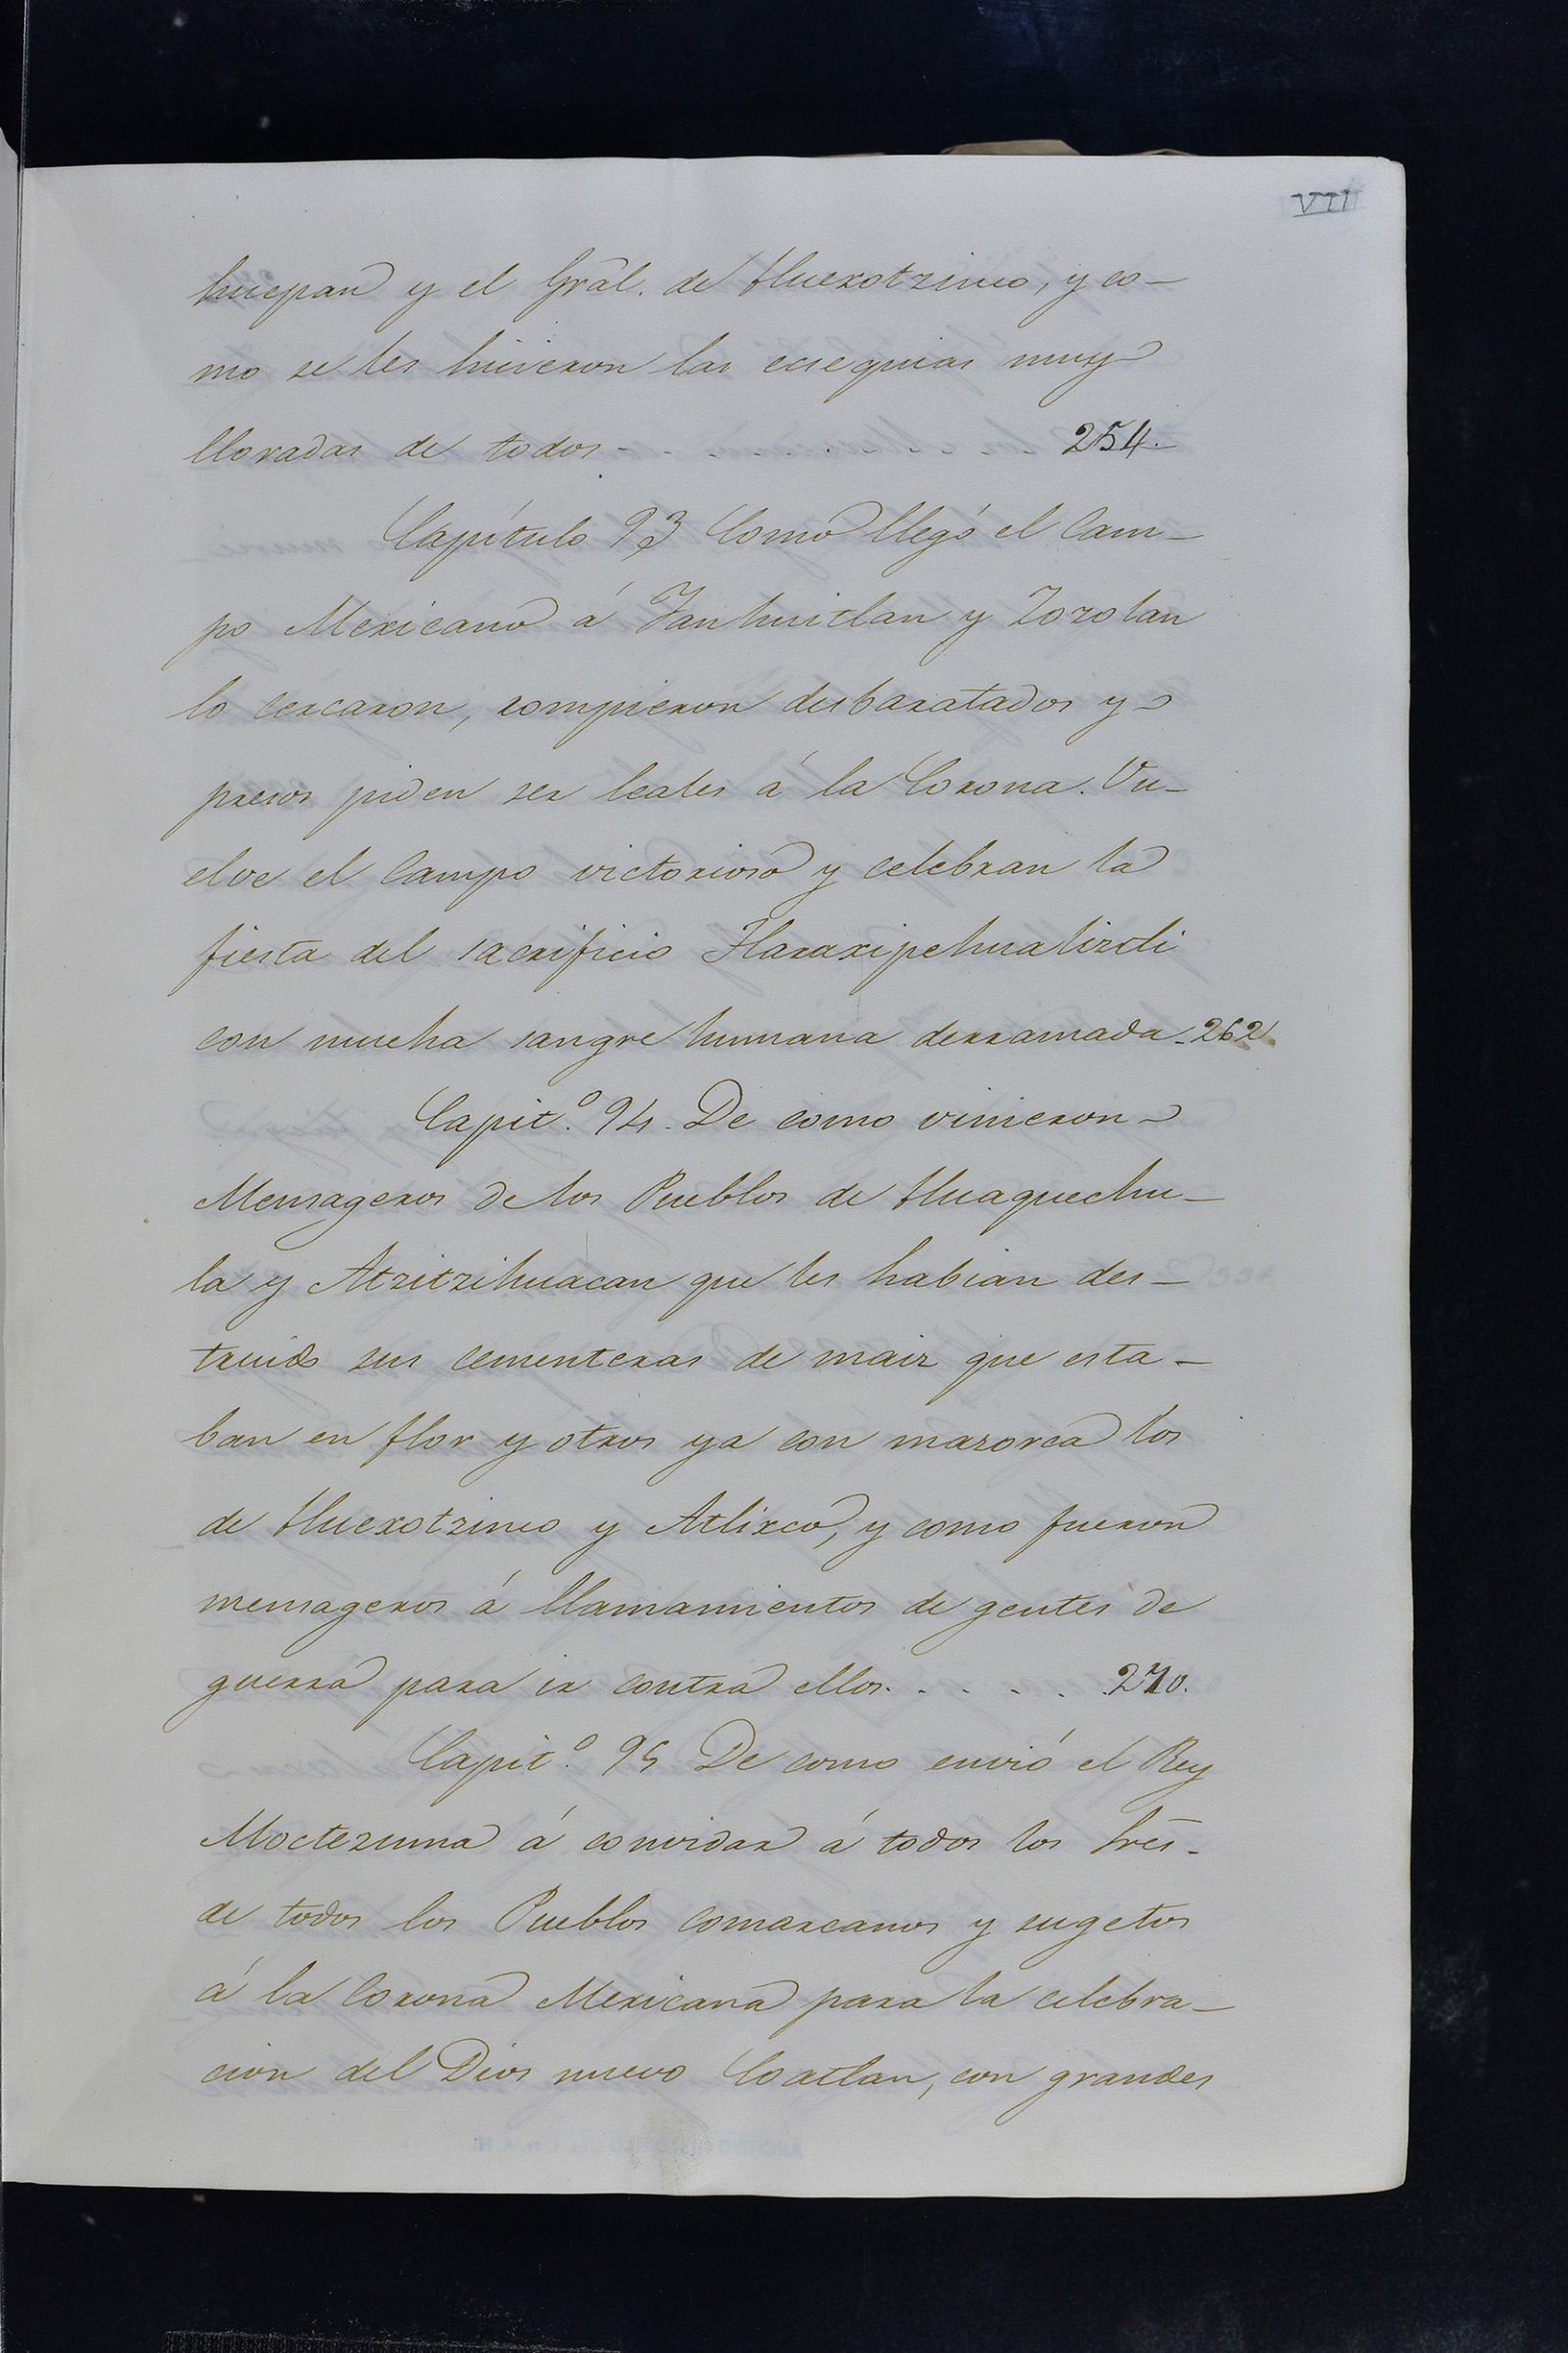 VII
huepan y el Grãl. de Huexotzinco, y co-
mo se les hicieron las ecsequias muy
lloradas de todos - . . . . . . . 254.
Capítulo 93 Como llegó el Cam-
po Mexicano á Yanhuitlan y Zozolan
lo cercaron, rompieron desbaratados y
presos piden ser leales á la Corona. Vu-
elve el Campo victorioso y celebran la
fiesta del sacrificio Tlaxaxipehualiztli
con mucha sangre humana derramada - 262.
Capit.º 94. De como vinieron
Mensageros de los Pueblos de Huaquechu-
la y Atzitzihuacan que les habian des-
truido sus cementeras de maiz que esta-
ban en flor y otros ya con mazorca los
de Huexotzinco y Atlixco, y como fueron
mensageros á llamamientos de gentes de
guerra para ir contra ellos. . . . . . 270.
Capit.º 95 De como envió el Rey
Moctezuma á convidar á todos los Srẽs.
de todos los Pueblos comarcanos y sugetos
á la Corona Mexicana para la celebra-
cion del Dios nuevo Coatlan, con grandes